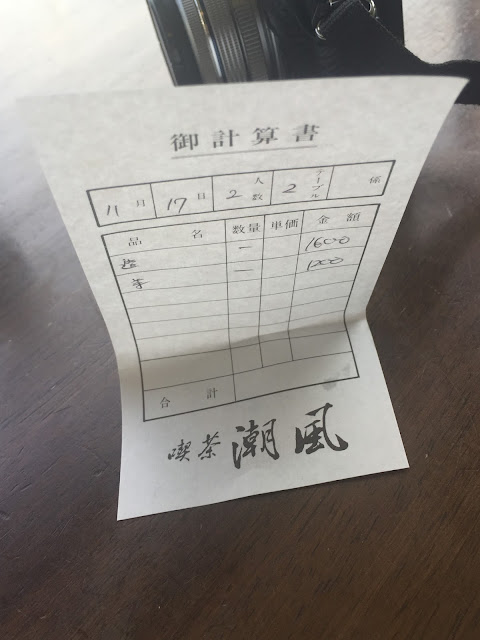 御計算書
11月 17日 2人数 2テーブル 係
品名 数量 単価 金額
一 1600
一 1200
合計
喫茶 潮風